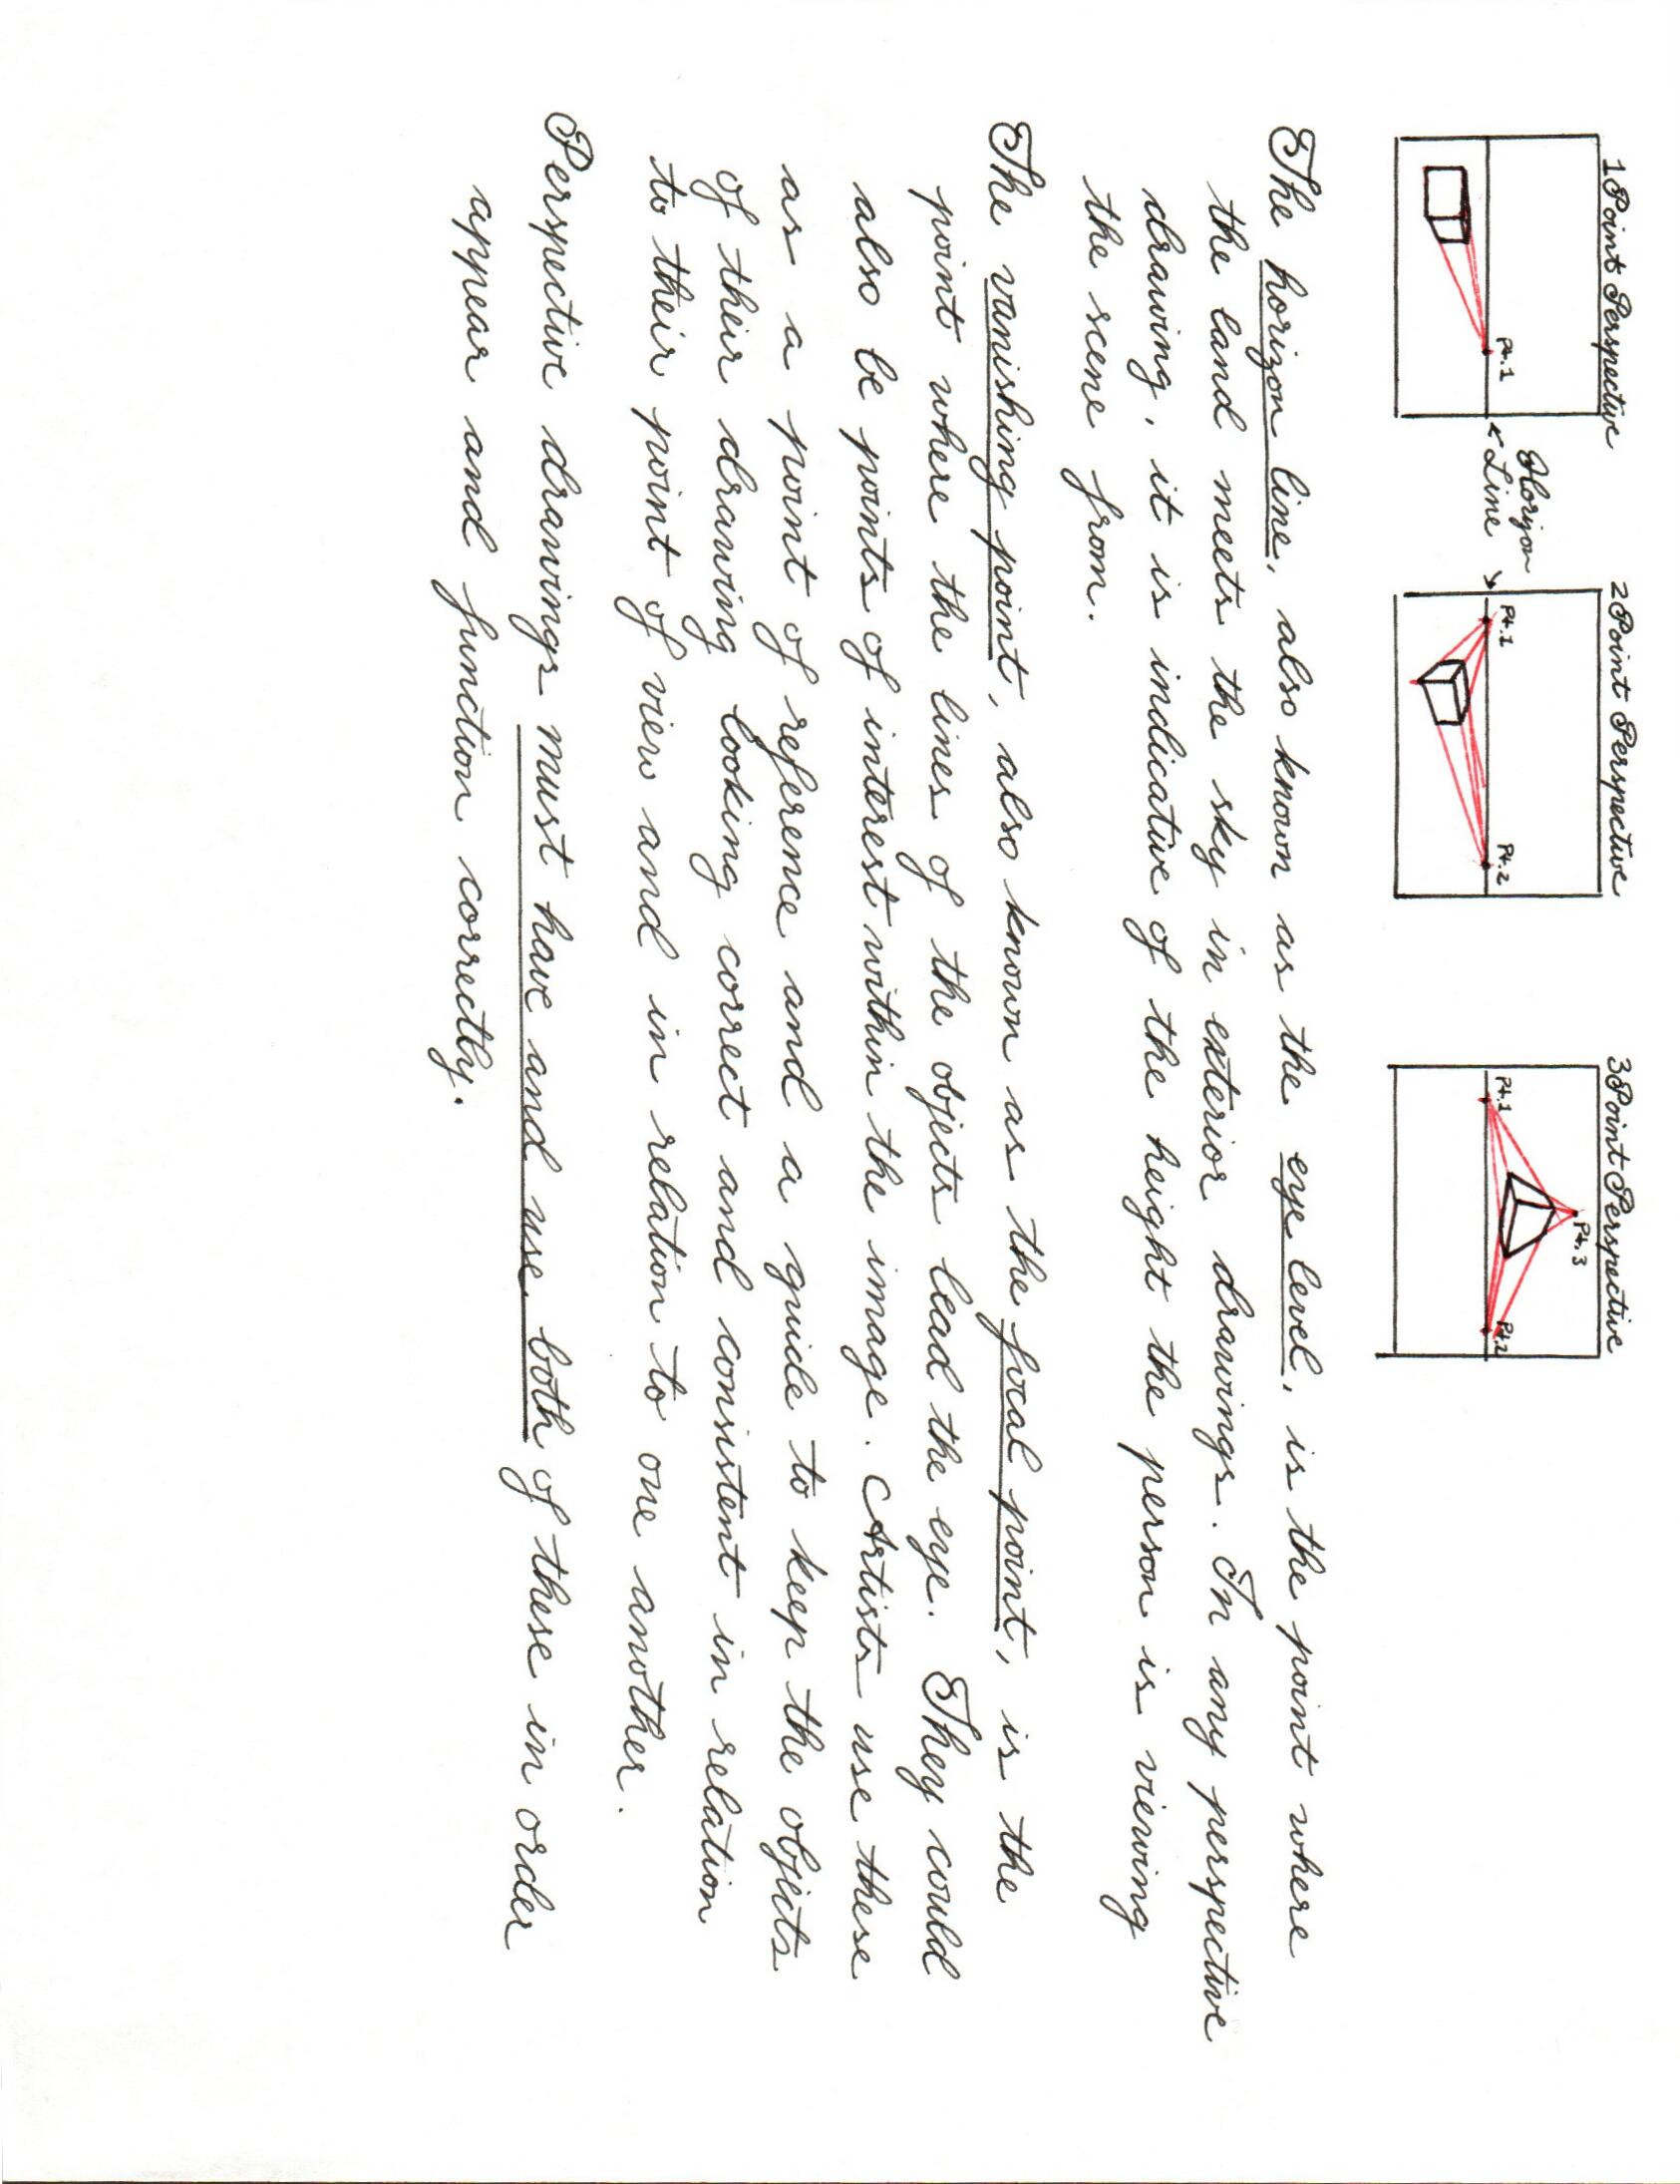 1 Point Perspective
2 Point Perspective
3 Point Perspective
Pt.1
Horizon
Line
Pt.1
Pt.2
Pt.1
Pt.3
Pt.2
The horizon line, also known as the eye level, is the point where
the land meets the sky in exterior drawings. In any perspective
drawing, it is indicative of the height the person is viewing
the scene from.
The vanishing point, also known as the focal point, is the
point where the lines of the objects lead the eye. They could
also be points of interest within the image. Artists use these
as a point of reference and a guide to keep the objects
of their drawing looking correct and consistent in relation
to their point of view and in relation to one another.
Perspective drawings must have and use both of these in order
appear and function correctly.